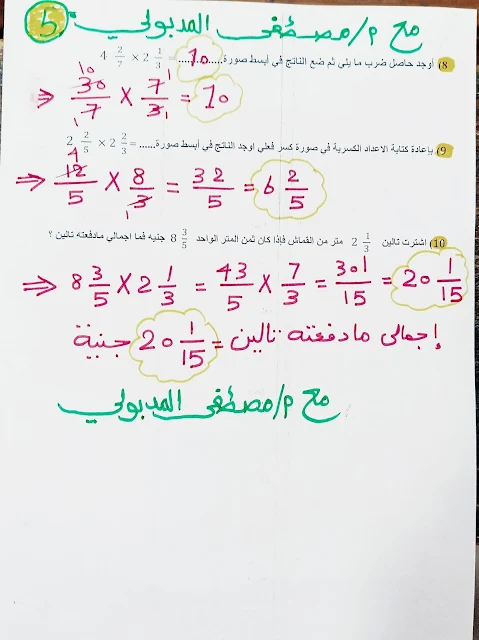 مع م/مصطفى المدبولي 5
8) أوجد حاصل ضرب ما يلي ثم ضع الناتج في أبسط صورة ...10... = 2 1/3 × 4 2/7
⇒ 30/7 × 7/3 = 10
10 1
1 1
9) بإعادة كتابة الاعداد الكسرية في صورة كسر فعلي اوجد الناتج في أبسط صورة...... = 2 2/3 × 2 2/5
⇒ 12/5 × 8/3 = 32/5 = 6 2/5
4
1
10) اشترت تالين 2 1/3 متر من القماش فإذا كان ثمن المتر الواحد 8 3/5 جنيه فما اجمالي مادفعته تالين ؟
⇒ 8 3/5 × 2 1/3 = 43/5 × 7/3 = 301/15 = 20 1/15
إجمالى مادفعته تالين = 20 1/15 جنية
مع م/مصطفى المدبولي